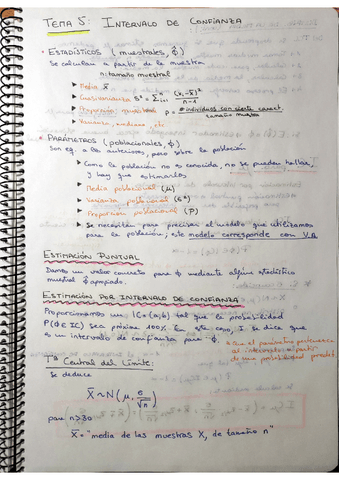 TEMA 5: INTERVALO DE CONFIANZA
• ESTADÍSTICOS (muestrales, φ̂)
Se calculan a partir de la muestra
n: tamaño muestral
▸ Media x̄
▸ Cuasivarianza S² = Σⁿᵢ₌₁ (xᵢ-x̄)² / n-1
▸ Proporción muestral p = nº individuos con cierta caract. / tamaño muestra
▸ Varianza, mediana, etc
• PARÁMETROS (poblacionales, φ)
Son eq. a los anteriores, pero sobre la población
▸ Como la población no es conocida, no se pueden hallar,
y hay que estimarlos
▸ Media poblacional (μ)
▸ Varianza poblacional (σ²)
▸ Proporción poblacional (P)
▸ Se necesitan para precisar el modelo que utilizamos
para la población, este modelo corresponde con V.A
ESTIMACIÓN PUNTUAL
Damos un valor concreto para φ mediante algún estadístico
muestral φ̂ apropiado.
ESTIMACIÓN POR INTERVALO DE CONFIANZA
Proporcionamos un IC=(a,b) tal que la probabilidad
P(φ∈IC) sea próxima 100%. En este caso, I se dice que
es un intervalo de confianza para φ.
* Que el parámetro pertenezca
al intervalo a partir
de una probabilidad
Tª Central del Límite:
Se deduce
X̄ ~ N(μ, σ/√n)
para n>30
X̄ = "media de las muestras X, de tamaño n"